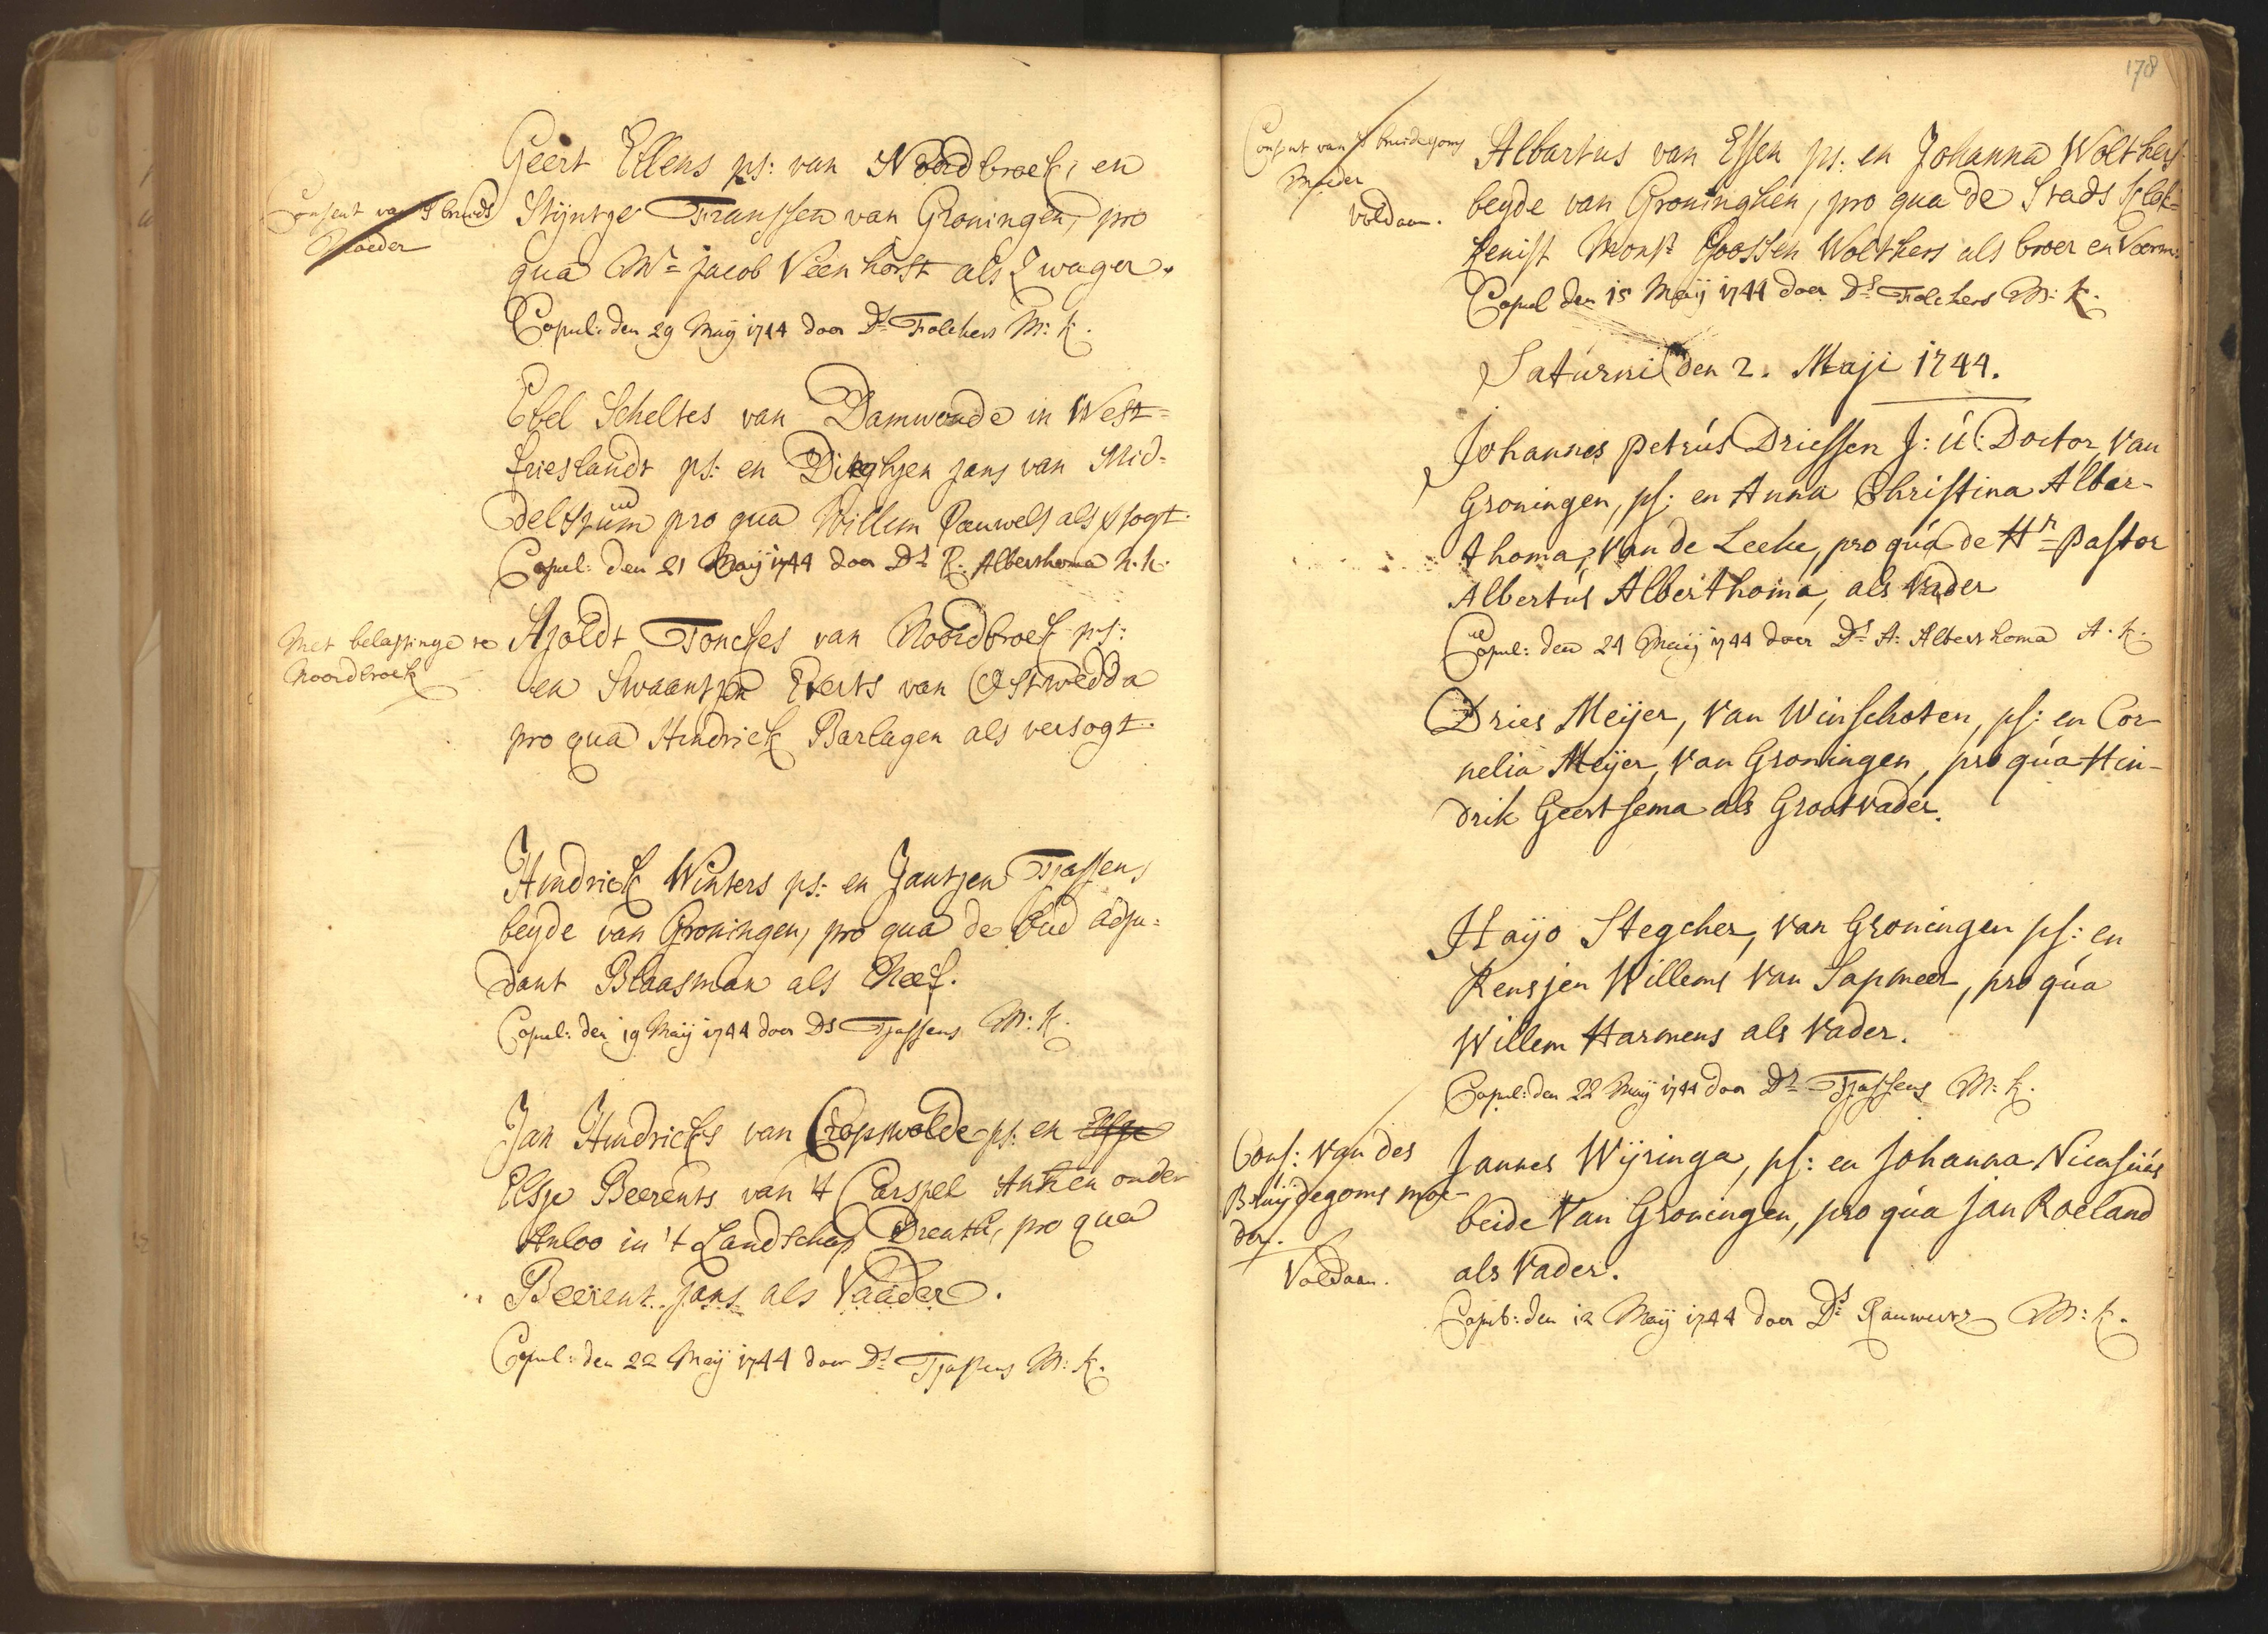 Geert Ellens ps: van Noordbroek, en
Consent van 's bruids
Moeder
Stijntge Franssen van Groningen, pro
qua Mr Jacob Veenhorst als Zwager.
Copul: den 29 Maij 1744 door Ds Folckers M: K.
Ebel Scheltes van Damwoude in West=
frieslandt ps: en Dieghjen Jans van Mid=
delstum pro qua Willem Pauwels als
Copul: den 21 Maij 1744 door Ds R. Alberthoma N. K.
Met belastinge te
Noordbroek
Ajoldt Fonckes van Noordbroek ps:
en Swaantjen Everts van Ostwedda
pro qua Hindrick Barlagen als versogt.
Hindrick Winters ps: en Jantjen Tjassens,
beyde van Groningen, pro qua de Oud adju=
dant Blaasman als Neef.
Copul: den 19 Maij 1744 door Ds Tjassens M: K.
Jan Hindricks van Cropswolde ps: en Elsje
Elsje Beerents van 't Carspel Anhen onder
Anloo in 't Landschap Drenth, pro qua
Beerent Jans als Vaader.
Copul: den 22 Maij 1744 door Ds Tjassens M: K.
178
Consent van 's bruidegoms
Moeder
voldaan.
Albartus van Essen ps: en Johanna Wolthers
beyde van Groninghen, pro qua de Stads Klok=
kenist Monsr Goossen Wolthers als broer en Voorm:
Copul den 15 Maij 1744 door Ds Folckers M: K.
Saturni den 2. Maji 1744.
Johannes Petrús Driessen J: Ú: Doctor, van
Groningen, ps: en Anna Christina Alber-
thoma, van de Leeke, pro qúa de Hr Pastor
Albertús Alberthoma, als Vader
Copul: den 24 Maij 1744 door Ds A: Alberthoma A. K.
Dries Meijer, van Winschoten, ps: en Cor-
nelia Meijer, van Groningen, pro qúa Hin-
drik Geertsema als Grootvader.
Hayo Stegcher, van Groningen ps: en
Rensjen Willems van Sapmeer, pro qúa
Willem Harmens als Vader.
Copul: den 22 Maij 1744 door Ds Tjassens M: K.
Cons: van des
Brúijdegoms moe-
der.
Voldaan.
Jannes Wijringa, ps: en Johanna Nicasiús
beide van Groningen, pro qúa Jan Roeland
als Vader.
Copul: den 12 Maij 1744 door Ds Rauwerts M: K.